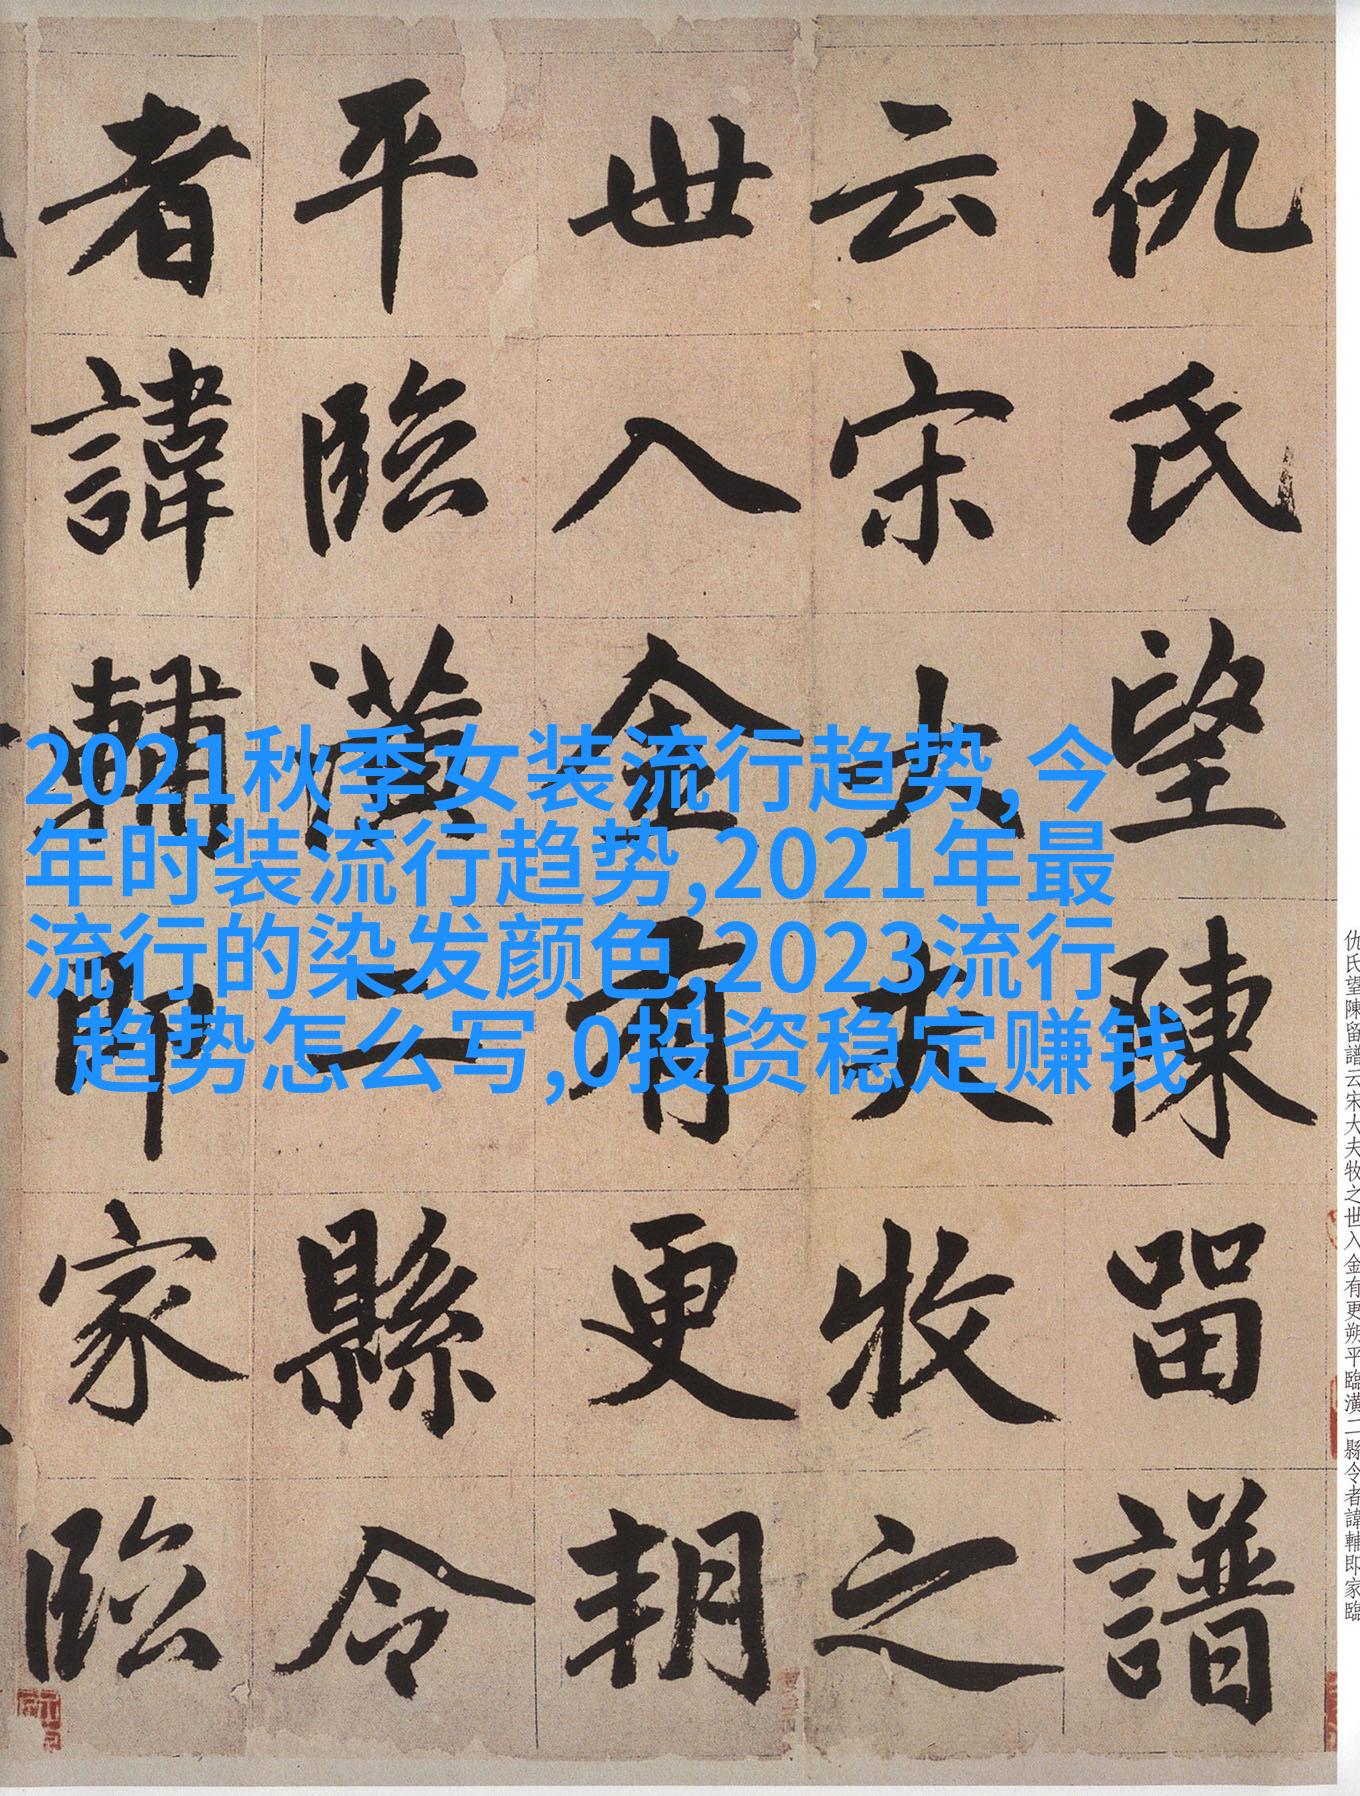 仇氏望陳留譜
云宋大夫牧之
世入金有更朔
平臨潢二縣令
者諱輔即家臨
2021秋季女装流行趋势,今
年时装流行趋势,2021年最
流行的染发颜色,2023流行
趋势怎么写,0投资稳定赚钱
仇氏望陳留譜云宋大夫牧之世入金有更朔平臨潢二縣令者諱輔即家臨